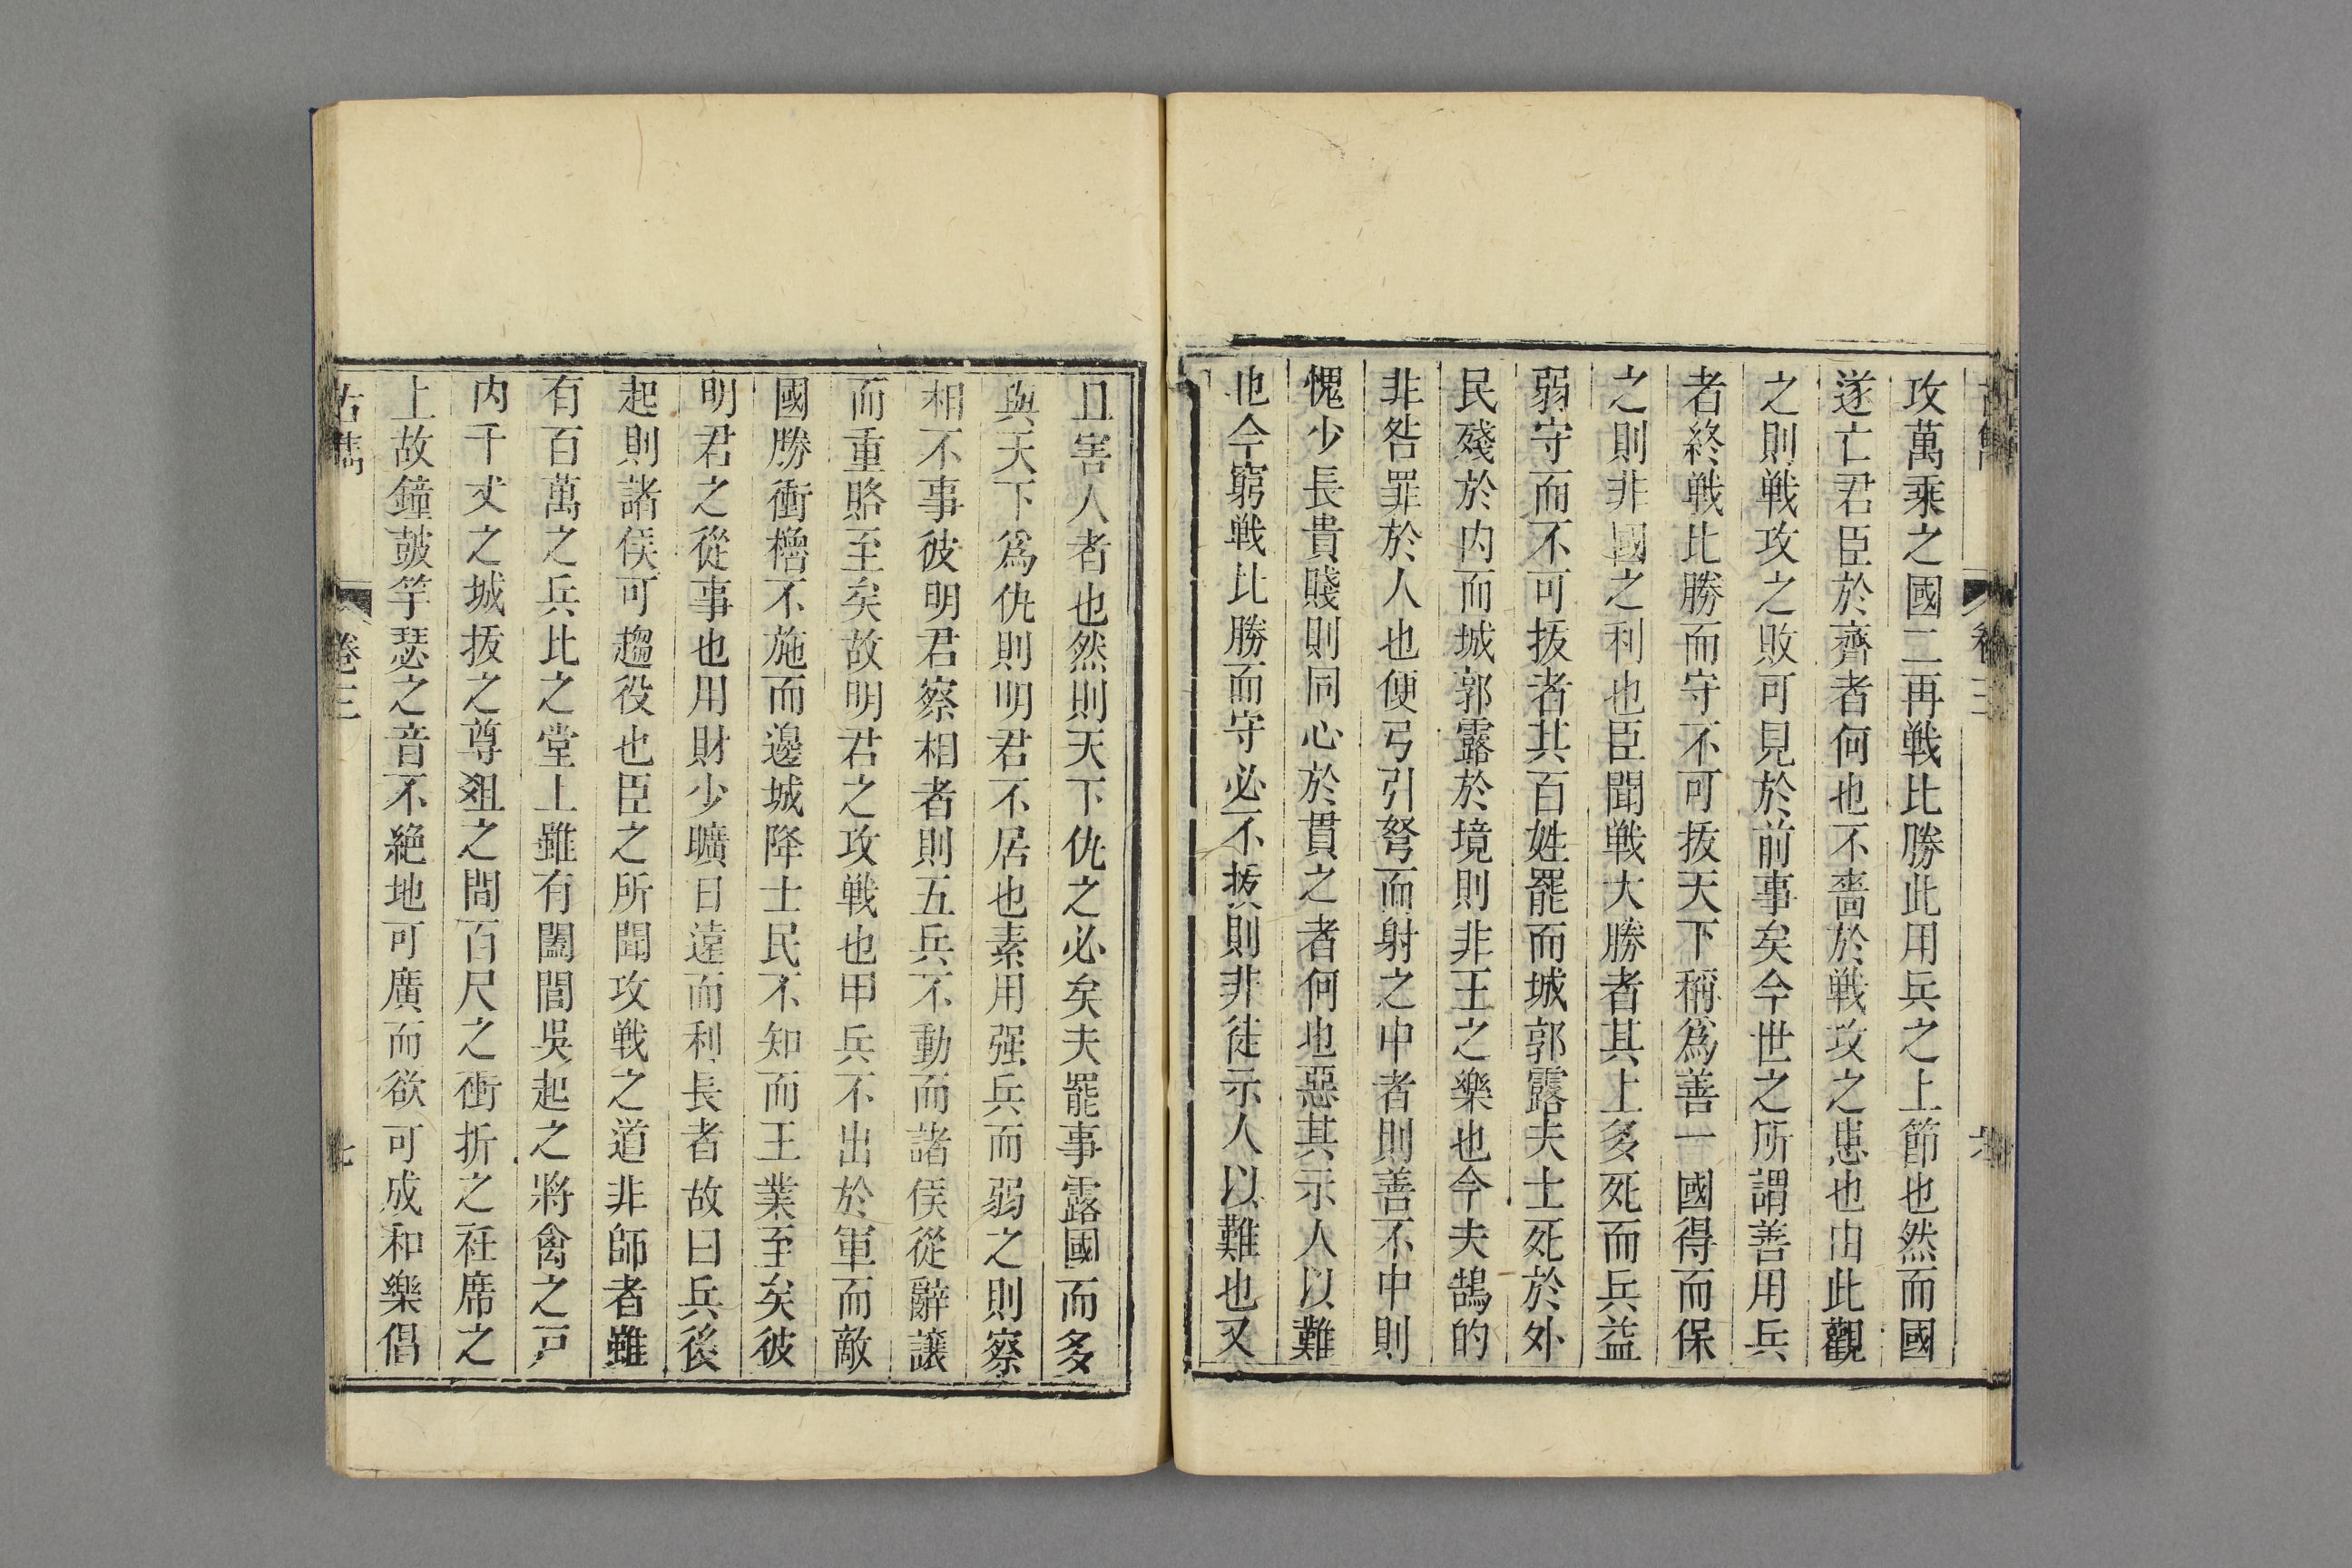 攻萬乘之國二再戦比勝此用兵之上節也然而國
遂亡君臣於齊者何也不嗇於戦攻之患也由此觀
之則戦攻之敗可見於前事矣今世之所謂善用兵
者終戦比勝而守不可拔天下稱爲善一國得而保
之則非國之利也臣聞戦大勝者其上多死而兵益
弱守而不可拔者其百姓罷而城郭露夫士死於外
民殘於内而城郭露於境則非王之樂也今夫鵠的
非咎罪於人也便弓引弩而射之中者則善不中則
愧少長貴賤則同心於貫之者何也惡其示人以難
也今窮戦比勝而守必不拔則非徒示人以難也又
且害人者也然則天下仇之必矣夫罷事露國而多
與天下爲仇則明君不居也素用强兵而弱之則察
相不事彼明君察相者則五兵不動而諸侯從辭讓
而重賂至矣故明君之攻戦也甲兵不出於軍而敵
國勝衝櫓不施而邊城降士民不知而王業至矣彼
明君之從事也用財少曠日遠而利長者故曰兵後
起則諸侯可趨役也臣之所聞攻戦之道非師者雖
有百萬之兵比之堂上雖有闔閭吳起之將禽之戸
内千丈之城拔之尊俎之間百尺之衝折之衽席之
上故鐘鼓竽瑟之音不絶地可廣而欲可成和樂倡
卷三
七